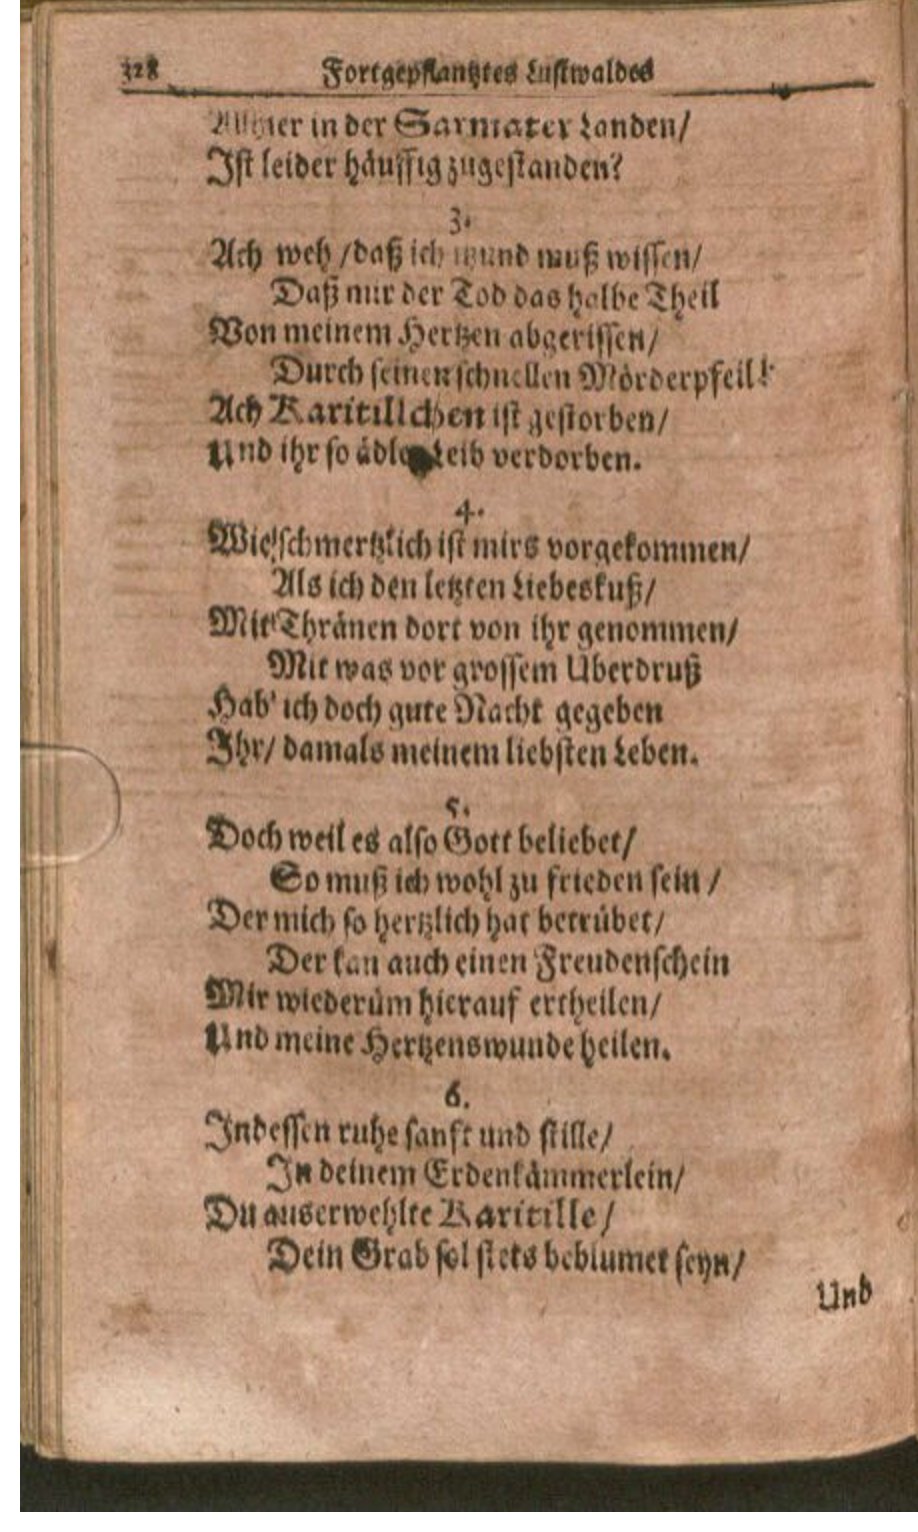 328 Fortgepflantztes Lustwaldes
in der Sarmater Landen/
Ist leider häuffig zugestanden?
3.
Ach weh /daß ich muß wissen/
Daß nur der Tod das halbe Theil
Von meinem Hertzen abgerissen/
Durch seinen schnellen Mörderpfeil!
Ach Karitillchen ist gestorben/
Und ihr so ädler Leib verdorben.
4.
Wie schmertzlich ist mirs vorgekommen/
Als ich den letzten Liebeskuß/
Mit Thränen dort von ihr genommen/
Mit was vor grossem Uberdruß
Hab' ich doch gute Nacht gegeben
Ihr/ damals meinem liebsten Leben.
5.
Doch weil es also Gott beliebet/
So muß ich wohl zu frieden sein /
Der mich so hertzlich hat betrübet/
Der kan auch einen Freudenschein
Mir wiederüm hierauf ertheilen/
Und meine Hertzenswunde heilen.
6.
Indessen ruhe sanft und stille/
In deinem Erdenkämmerlein/
Du auserwehlte Karitille/
Dein Grab sol stets beblumet seyn/
Und